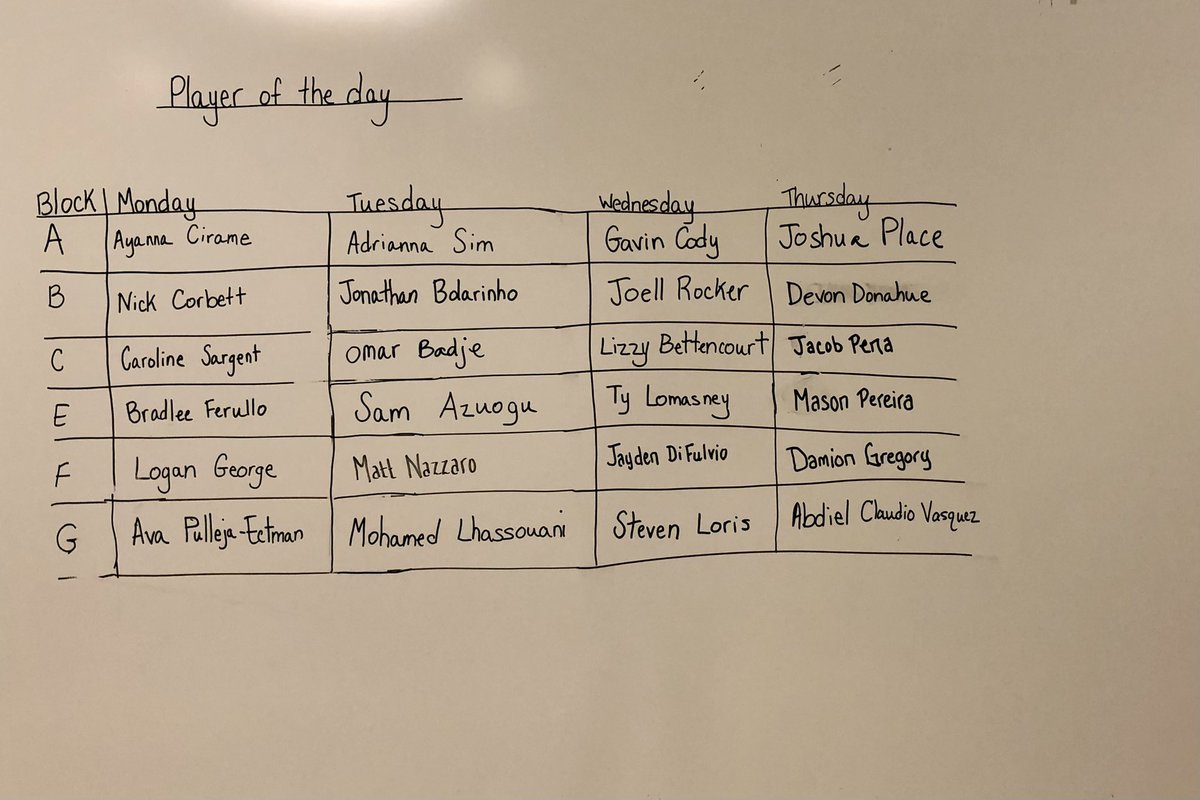 Player of the day
Block Monday Tuesday Wednesday Thursday
A Ayanna Cirame Adrianna Sim Gavin Cody Joshua Place
B Nick Corbett Jonathan Bolarinho Joell Rocker Devon Donahue
C Caroline Sargent Omar Badje Lizzy Bettencourt Jacob Pena
E Bradlee Ferullo Sam Azuogu Ty Lomasney Mason Pereira
F Logan George Matt Nazzaro Jayden DiFulvio Damion Gregory
G Ava Pulleja-Ectman Mohamed Lhassouani Steven Loris Abdiel Claudio Vasquez